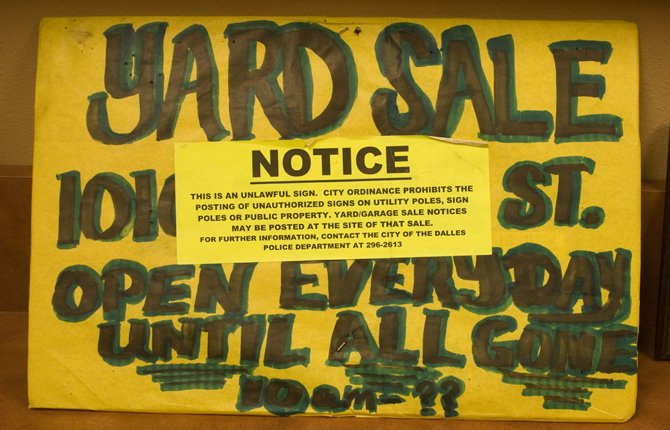 YARD SALE
NOTICE
THIS IS AN UNLAWFUL SIGN. CITY ORDINANCE PROHIBITS THE
POSTING OF UNAUTHORIZED SIGNS ON UTILITY POLES, SIGN
POLES OR PUBLIC PROPERTY. YARD/GARAGE SALE NOTICES
MAY BE POSTED AT THE SITE OF THAT SALE.
FOR FURTHER INFORMATION, CONTACT THE CITY OF THE DALLES
POLICE DEPARTMENT AT 296-2613
ST.
OPEN EVERYDAY
UNTIL ALL GONE
10am - ??